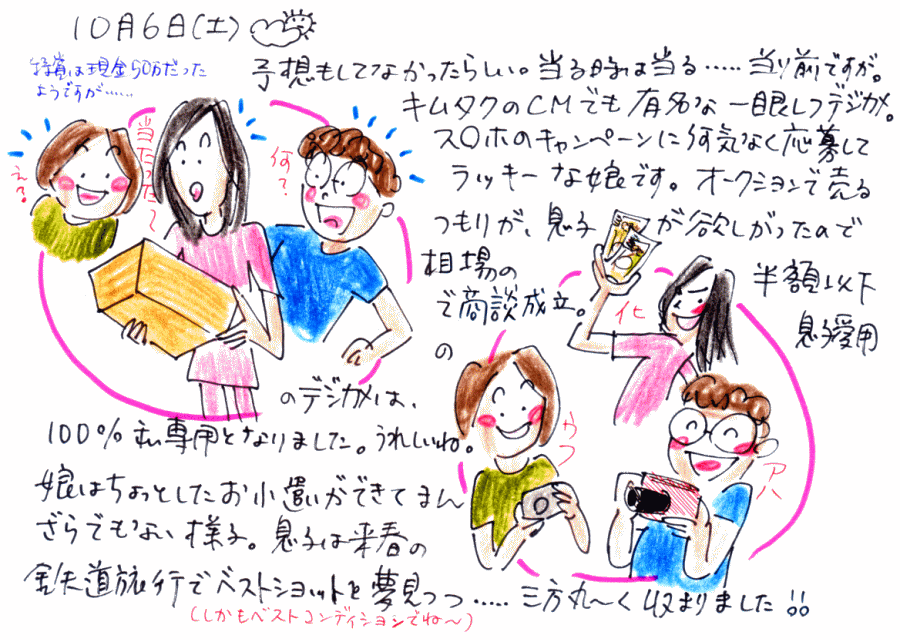 10月6日(土)
特賞は現金50万だった
ようですが……
予想もしてなかったらしい。当る時は当る……当り前ですが。
キムタクのCMでも有名な一眼レフデジカメ。
スロホのキャンペーンに何気なく応募して
ラッキーな娘です。オークションで売る
つもりが、息子が欲しがったので
相場の半額以下
で商談成立。息子愛用
の
のデジカメは、
100%私専用となりました。うれしいね。
娘はちょっとしたお小遣いができてまん
ざらでもない様子。息子は来春の
鉄道旅行でベストショットを夢見つつ……三方丸〜く収まりました!!
(しかもベストコンディションでね〜)
え?
当たった〜
何?
ウフ
アハ